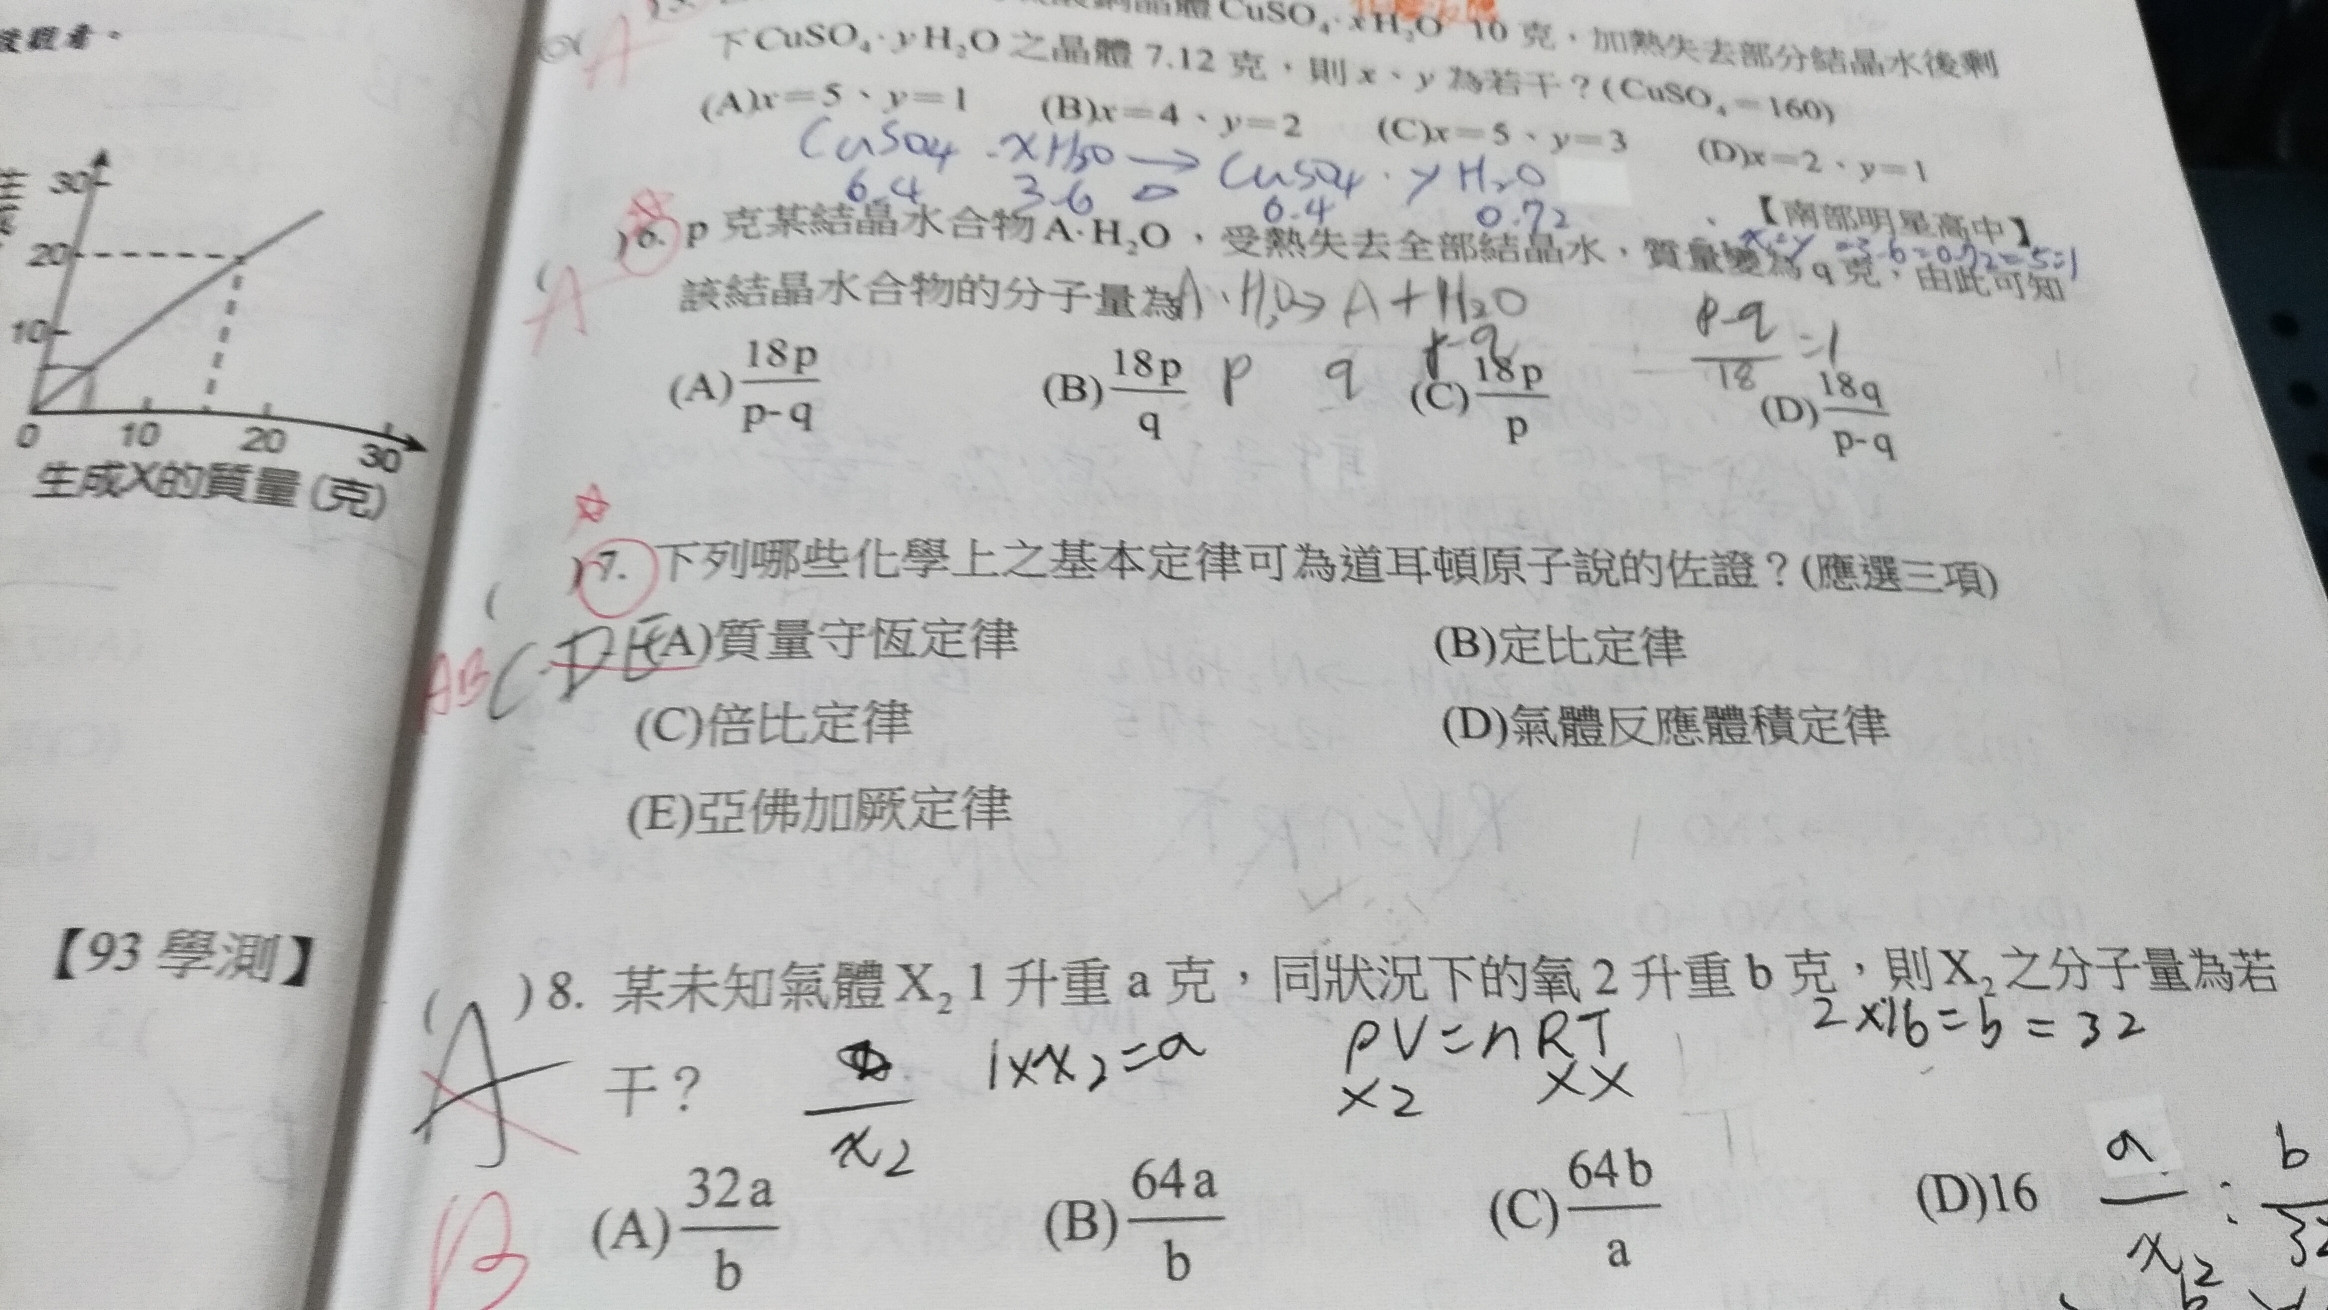 CuSO₄·xH₂O 10 克，加熱失去部分結晶水後剩
下CuSO₄·yH₂O之晶體 7.12 克，則 x、y 為若干？(CuSO₄=160)
(A)x=5、y=1 (B)x=4、y=2 (C)x=5、y=3 (D)x=2、y=1
CuSO4 · xH2O → CuSO4 · yH2O
6.4 3.6 6.4 0.72
【南部明星高中】
x=y=3.6=0.72=5=1
A
)6. p 克某結晶水合物A·H₂O，受熱失去全部結晶水，質量變為q克，由此可知
該結晶水合物的分子量為
A·H2O→A+H2O
p q p-q
p-q/18=1
(A)18p/p-q (B)18p/q (C)18p/p (D)18q/p-q
A
( )7. 下列哪些化學上之基本定律可為道耳頓原子說的佐證？(應選三項)
ABCDE
(A)質量守恆定律 (B)定比定律
(C)倍比定律 (D)氣體反應體積定律
(E)亞佛加厥定律
( )8. 某未知氣體X₂ 1 升重 a 克，同狀況下的氧 2 升重 b 克，則X₂之分子量為若
干？
A
1×x2=a
PV=nRT
×2 ××
2×16=b=32
x2
(A)32a/b (B)64a/b (C)64b/a (D)16
a/x2 : b/32
B
30
20
10
0 10 20 30
生成X的質量(克)
【93 學測】